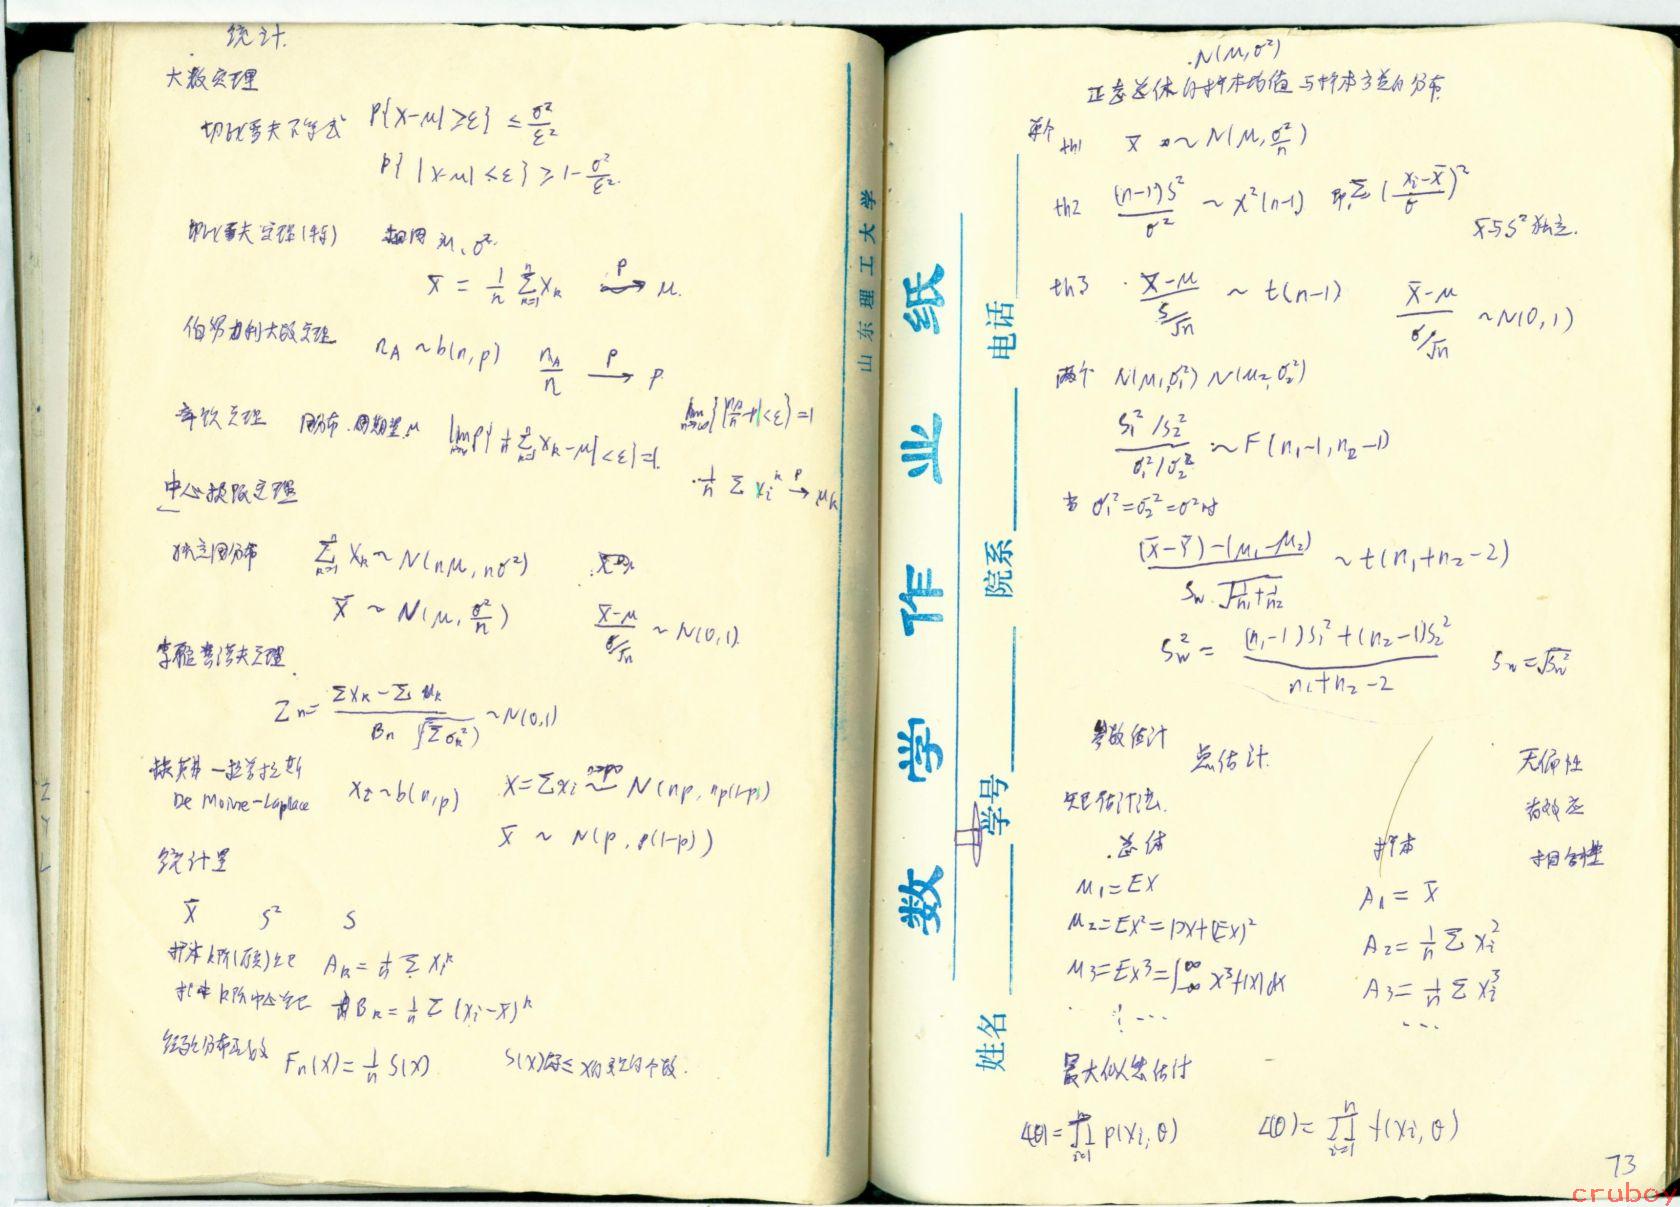 统计.
大数定理
切比雪夫不等式 P{|X-μ|≥ε} ≤ σ²/ε²
P{|X-μ|<ε} ≥ 1-σ²/ε².
切比雪夫定理(特) 相同 μ, σ².
X̄ = 1/n Σ(k=1..n) Xk →(P) μ.
伯努力利大数定理 nA ~ b(n,p) nA/n →(P) p
lim(n→∞){|nA/n - p|<ε}=1
辛钦定理 同分布.同期望μ lim(n→∞) P{|1/n Σ(k=1..n) Xk - μ|<ε}=1.
1/n Σ Xi^k →(P) μk
中心极限定理
独立同分布 Σ(k=1..n) Xk ~ N(nμ, nσ²)
X̄ ~ N(μ, σ²/n) (X̄-μ)/(σ/√n) ~ N(0,1).
李雅普诺夫定理.
Zn = (ΣXk - Σμk)/Bn (√Σσk²) ~ N(0,1)
棣莫弗—拉普拉斯
De Moivre-Laplace
Xi ~ b(n,p) X = Σxi ~(n→∞) N(np, np(1-p))
X̄ ~ N(p, p(1-p))
统计量
X̄ S² S
样本k阶(原点)矩 Ak = 1/n Σ Xi^k
样本k阶中心矩 Bk = 1/n Σ (Xi-X̄)^k
经验分布函数 Fn(X) = 1/n S(X) S(X)为≤X的变量的个数.
山东理工大学
数学作业纸
姓名 学号 院系 电话
N(μ,σ²)
正态总体的样本均值与样本方差的分布
单个
th1 X̄ ~ N(μ, σ²/n)
th2 (n-1)S²/σ² ~ χ²(n-1) 即 Σ((Xi-X̄)/σ)²
X̄与S²独立.
th3 (X̄-μ)/(S/√n) ~ t(n-1) (X̄-μ)/(σ/√n) ~ N(0,1)
两个 N(μ1,σ1²) N(μ2,σ2²)
(S1²/S2²)/(σ1²/σ2²) ~ F(n1-1, n2-1)
当 σ1²=σ2²=σ²时
((X̄-Ȳ)-(μ1-μ2))/(Sw·√(1/n1+1/n2)) ~ t(n1+n2-2)
Sw² = ((n1-1)S1²+(n2-1)S2²)/(n1+n2-2) Sw=√Sw²
参数估计
点估计. 无偏性
矩估计法. 有效性
总体 样本 相合性
μ1=EX A1 = X̄
μ2=EX²=DX+(EX)² A2 = 1/n Σ Xi²
μ3=EX³=∫(-∞..∞) x³f(x)dx A3 = 1/n Σ Xi³
⋮ ... ...
最大似然估计
L(θ)=∏(i=1..n) p(xi,θ) L(θ)=∏(i=1..n) f(xi,θ)
73
cruboy